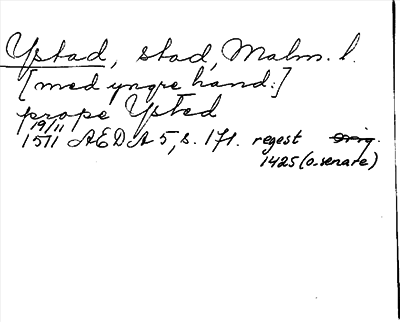 Ystad, stad, Malm. l.
[med yngre hand:]
prope Ysted
19/11
1511 AEDA 5, s. 171. regest Orig.
1425 (o. senare)